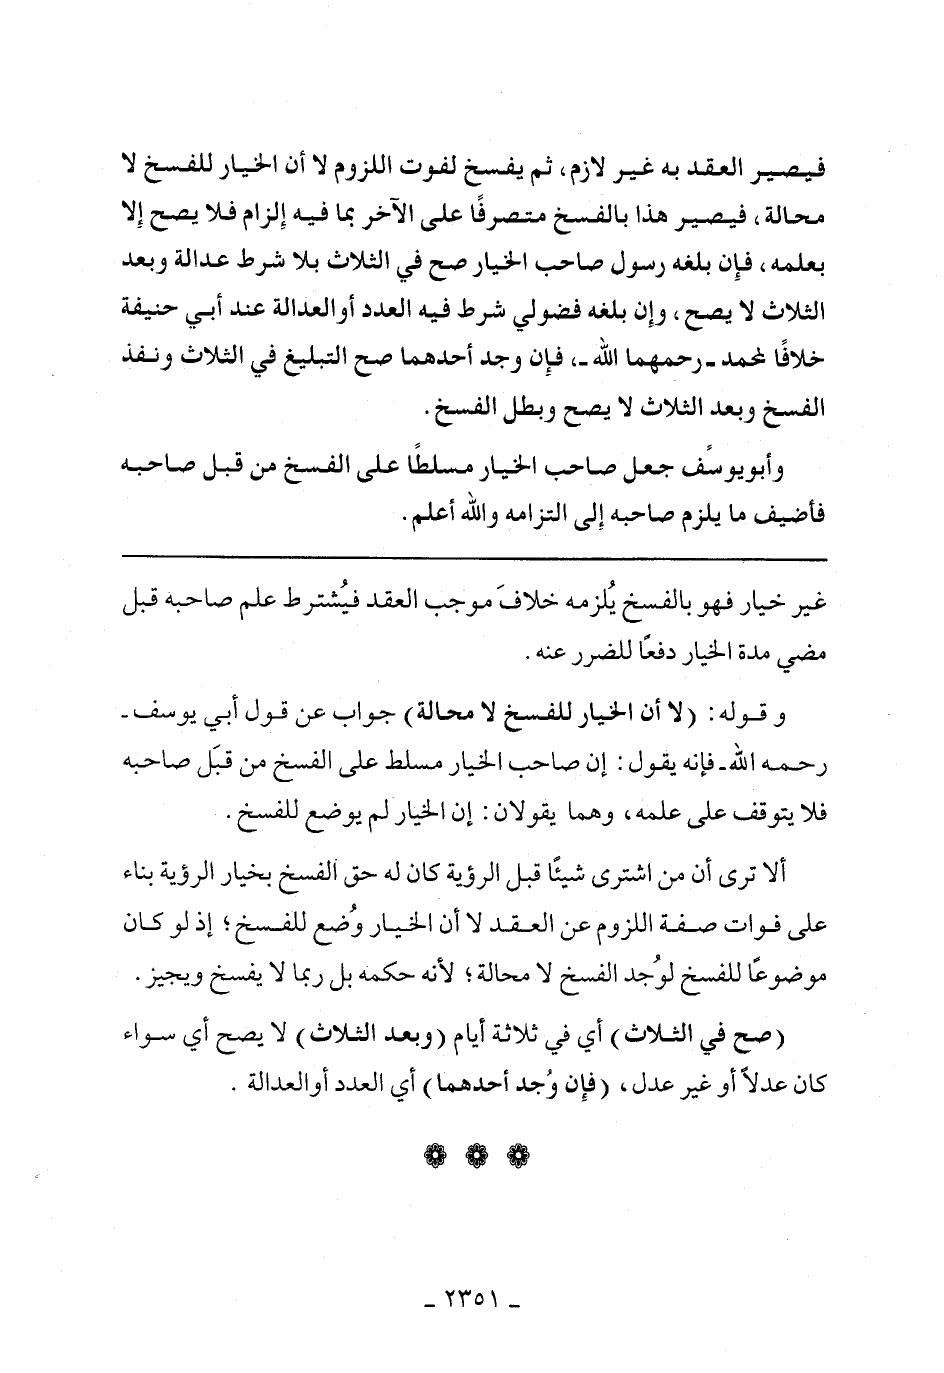 فيصير العقد به غير لازم، ثم يفسخ لفوت اللزوم لا أن الخيار للفسخ لا
محالة، فيصير هذا بالفسخ متصرفًا على الآخر بما فيه إلزام فلا يصح إلا
بعلمه، فإن بلغه رسول صاحب الخيار صح في الثلاث بلا شرط عدالة وبعد
الثلاث لا يصح، وإن بلغه فضولي شرط فيه العدد أوالعدالة عند أبي حنيفة
خلافًا لمحمد ـ رحمهما الله ـ، فإن وجد أحدهما صح التبليغ في الثلاث ونفذ
الفسخ وبعد الثلاث لا يصح وبطل الفسخ.
وأبويوسُف جعل صاحب الخيار مسلطًا على الفسخ من قبل صاحبه
فأضيف ما يلزم صاحبه إلى التزامه والله أعلم.
غير خيار فهو بالفسخ يُلزمه خلافَ موجب العقد فيُشترط علم صاحبه قبل
مضي مدة الخيار دفعًا للضرر عنه.
وقوله: (لا أن الخيار للفسخ لا محالة) جواب عن قول أبي يوسف ـ
رحمه الله ـ فإنه يقول: إن صاحب الخيار مسلط على الفسخ من قبَل صاحبه
فلا يتوقف على علمه، وهما يقولان: إن الخيار لم يوضع للفسخ.
ألا ترى أن من اشترى شيئًا قبل الرؤية كان له حق الفسخ بخيار الرؤية بناء
على فوات صفة اللزوم عن العقد لا أن الخيار وُضع للفسخ؛ إذ لو كان
موضوعًا للفسخ لوُجد الفسخ لا محالة؛ لأنه حكمه بل ربما لا يفسخ ويجيز.
(صح في الثلاث) أي في ثلاثة أيام (وبعد الثلاث) لا يصح أي سواء
كان عدلاً أو غير عدل، (فإن وُجد أحدهما) أي العدد أوالعدالة.
ـ ٢٣٥١ ـ